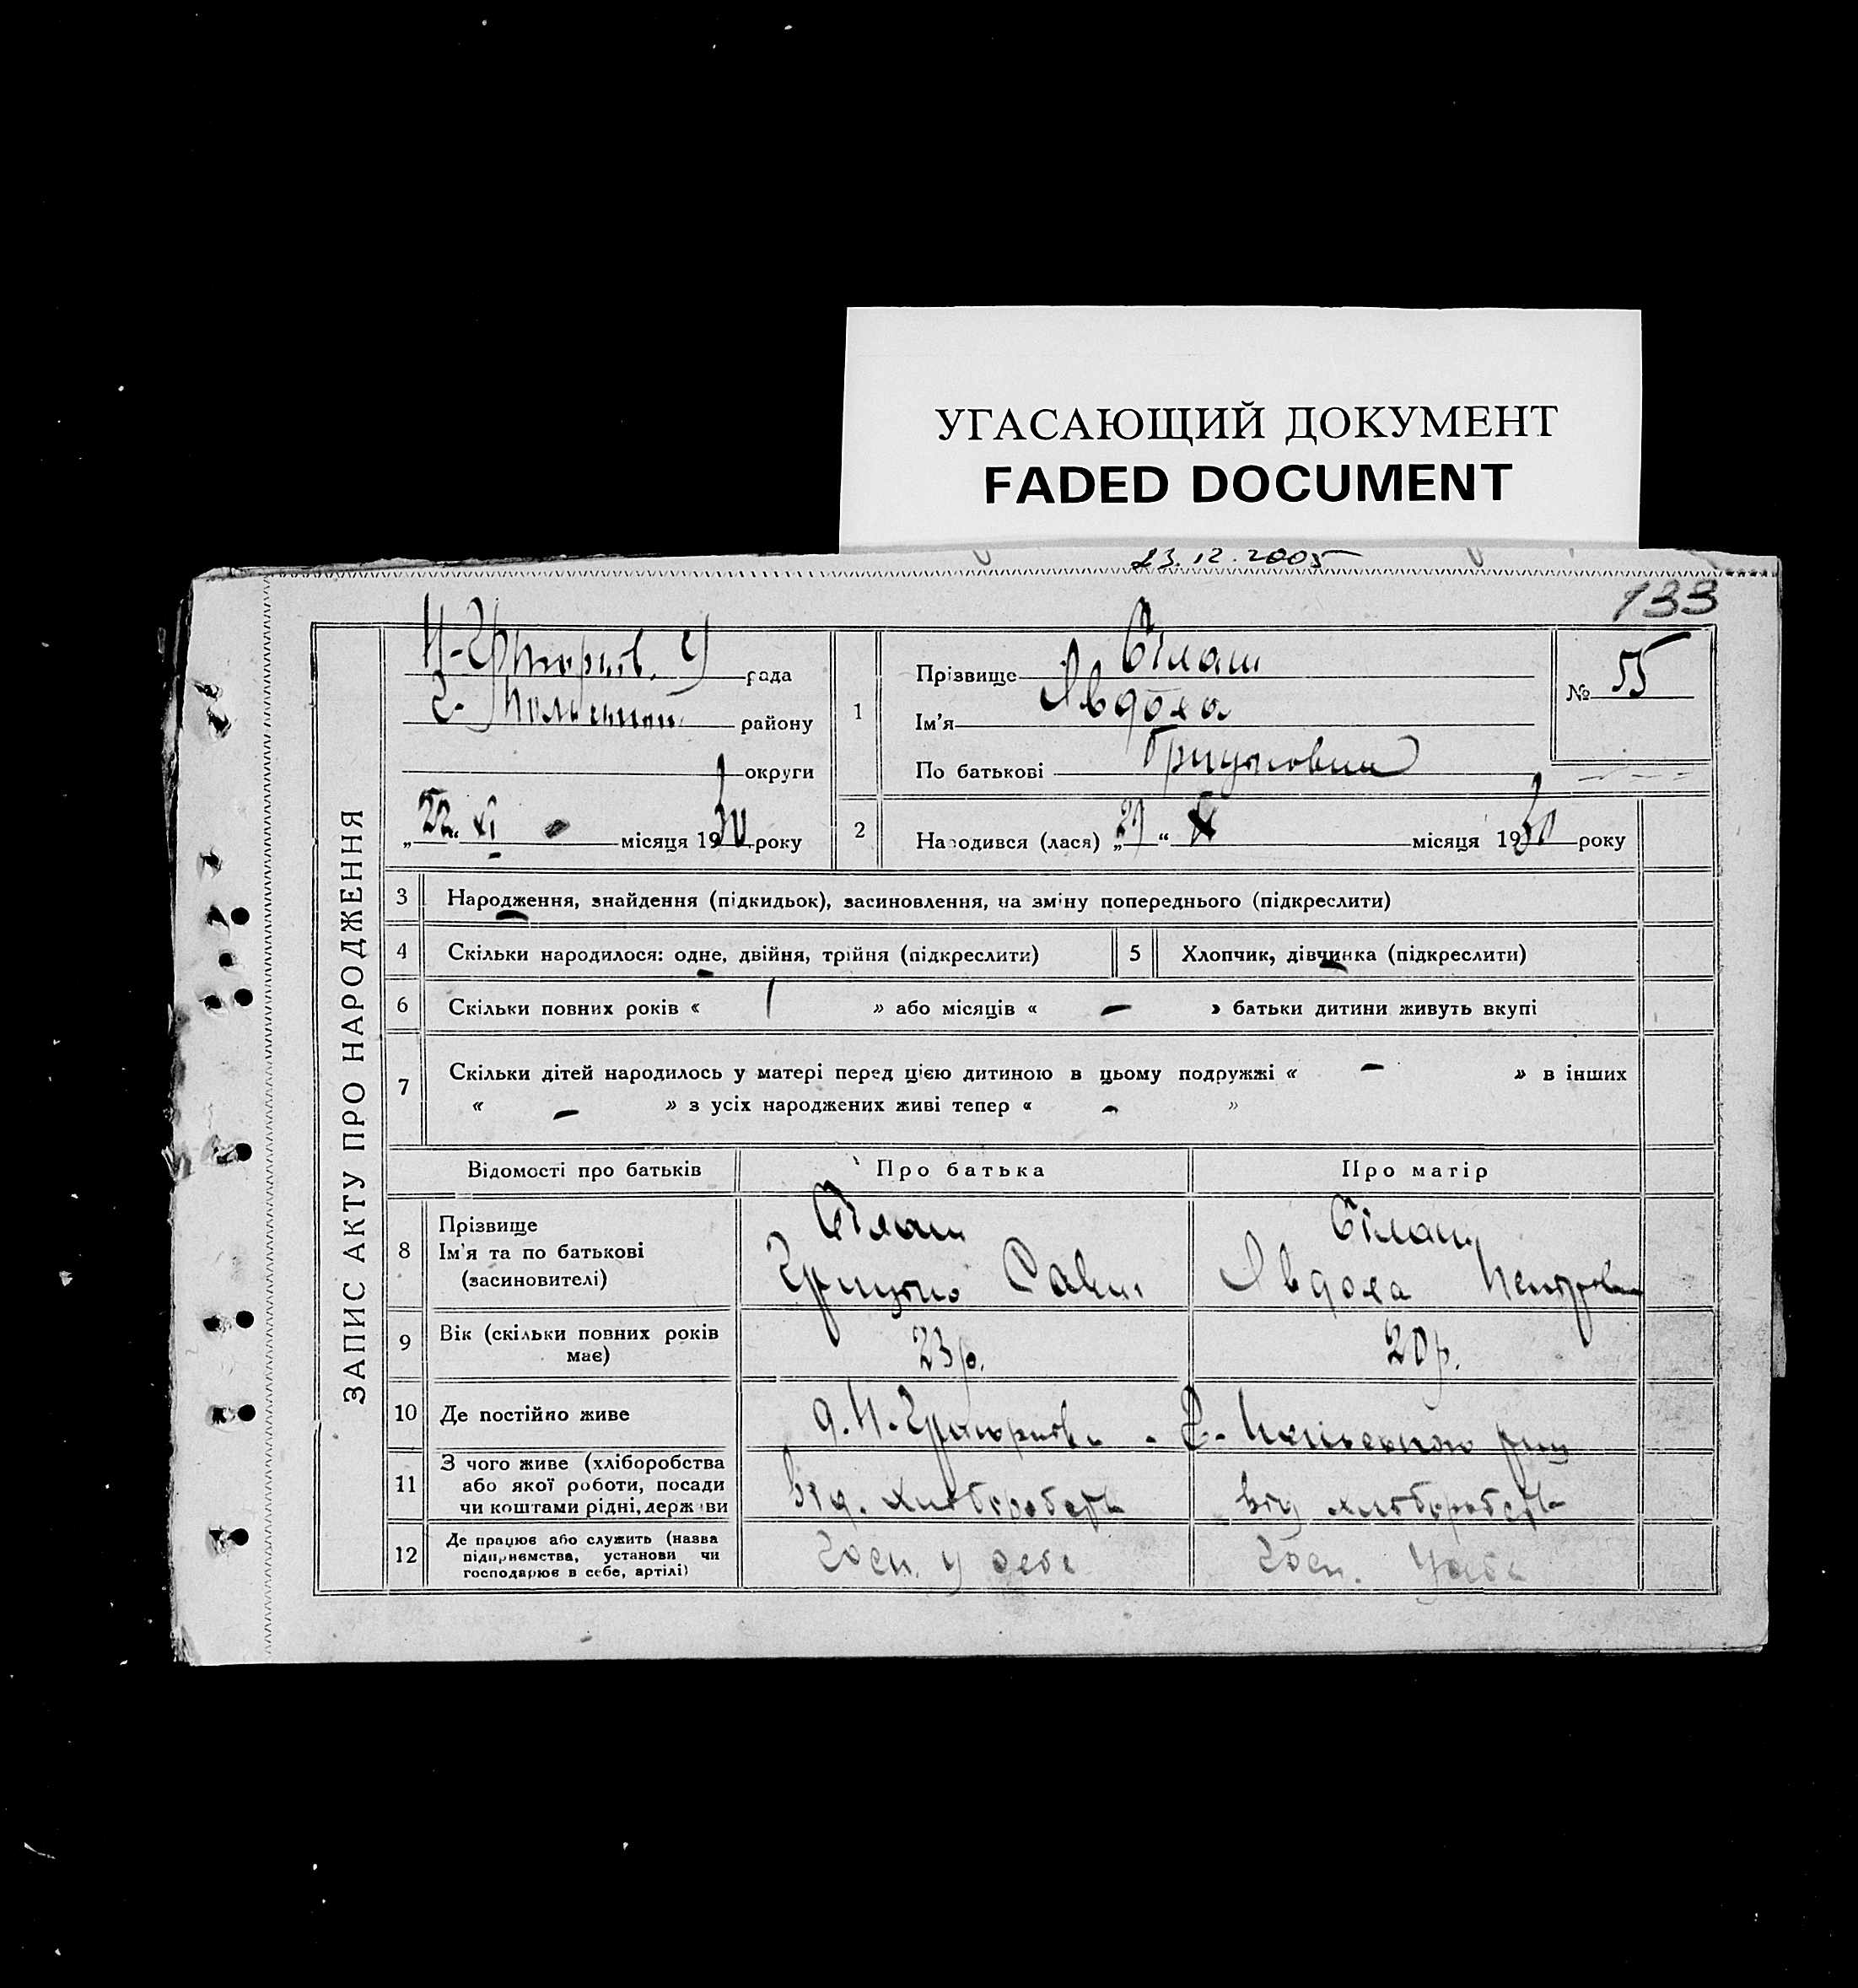 УГАСАЮЩИЙ ДОКУМЕНТ
FADED DOCUMENT
23.12.2005
133
ЗАПИС АКТУ ПРО НАРОДЖЕННЯ
рада
району
округи
„22“ XI місяця 1930 року
1
Прізвище Білаш
Ім'я Явдоха
По батькові
№ 55
2
Народився (лася) „29“ місяця 1930 року
3 Народження, знайдення (підкидьок), засиновлення, на зміну попереднього (підкреслити)
4 Скільки народилося: одне, двійня, трійня (підкреслити)
5 Хлопчик, дівчинка (підкреслити)
6 Скільки повних років « 1 » або місяців « — » батьки дитини живуть вкупі
7 Скільки дітей народилось у матері перед цією дитиною в цьому подружжі « — » в інших
« — » з усіх народжених живі тепер « — »
Відомості про батьків Про батька Про матір
8 Прізвище
Ім'я та по батькові
(засиновителі)
Білаш
Грицько Сави
Білаш
Явдоха Петров
9 Вік (скільки повних років
має)
23 р.
20 р.
10 Де постійно живе
11 З чого живе (хліборобства
або якої роботи, посади
чи коштами рідні, держави
від. хліборобств
від хліборобств
12 Де працює або служить (назва
підприємства, установи чи
господарює в себе, артілі)
Госп. у себе
Госп. у себе